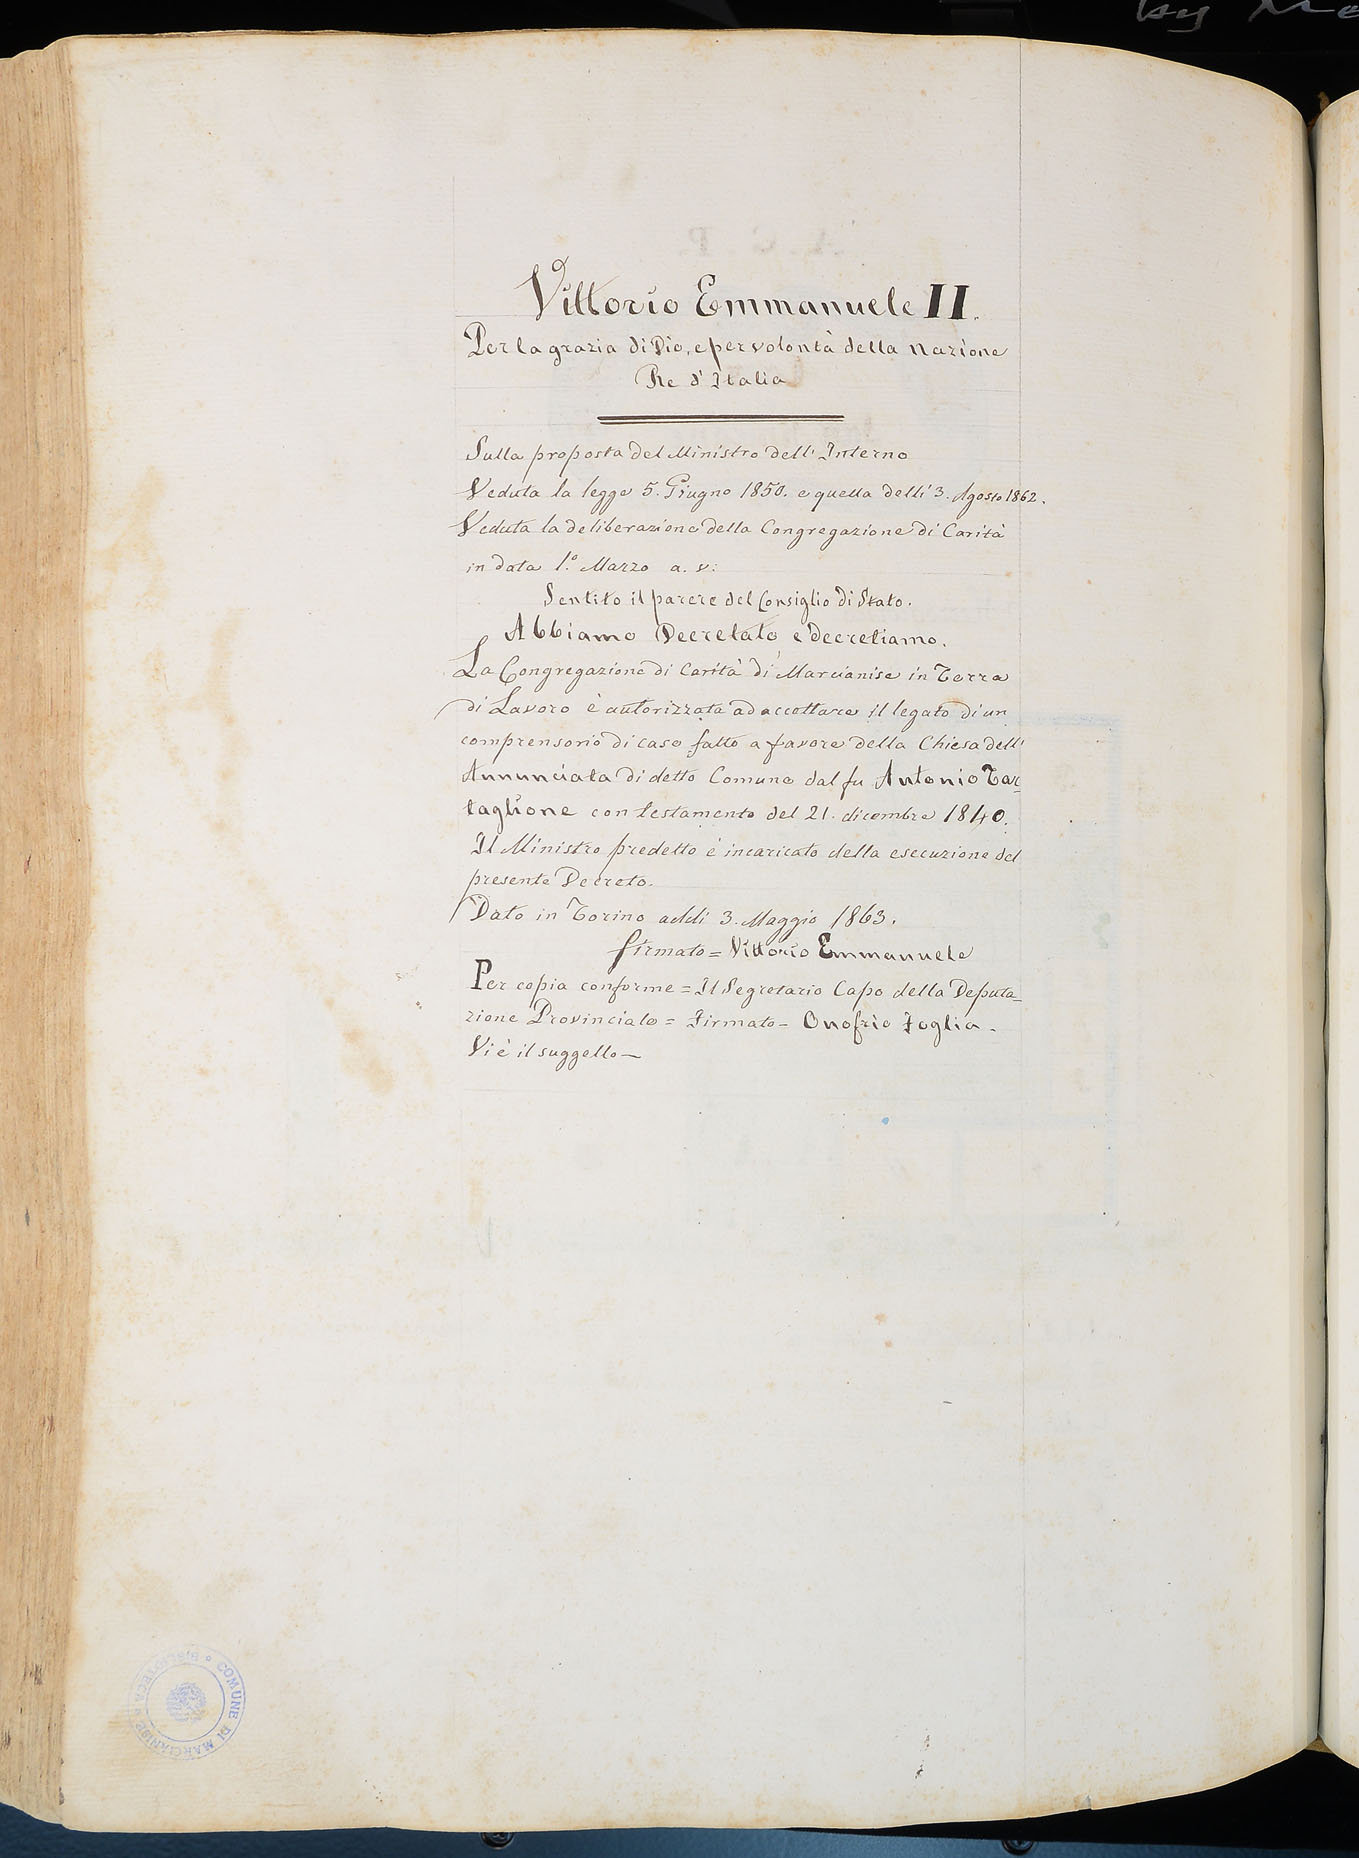 Vittorio Emmanuele II.
Per la grazia di Dio, e per volontà della Nazione
Re d'Italia
Sulla proposta del Ministro dell'Interno
Veduta la legge 5. Giugno 1850. e quella delli 3. Agosto 1862.
Veduta la deliberazione della Congregazione di Carità
in data 1.° Marzo a. s:
Sentito il parere del Consiglio di Stato.
Abbiamo Decretato e decretiamo.
La Congregazione di Carità di Marcianise in Terra
di Lavoro è autorizzata ad accettare il legato di un
comprensorio di case fatto a favore della Chiesa dell'
Annunciata di detto Comune dal fu Antonio Tar_
taglione con testamento del 21. dicembre 1840.
Il Ministro predetto è incaricato della esecuzione del
presente Decreto.
Dato in Torino addì 3. Maggio 1863.
firmato = Vittorio Emmanuele
Per copia conforme = Il Segretario Capo della Deputa_
zione Provinciale = Firmato - Onofrio Foglia -
Vi è il suggello —
BIBLIOTECA ° COMUNE DI MARCIANISE
by